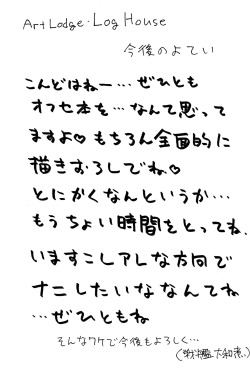 Art Lodge・Log House
今後のよてい
こんどはねー…ぜひとも
オフセ本を…なんて思って
ますよ♡もちろん全面的に
描きおろしでね♡
とにかくなんというか…
もうちょい時間をとってね、
いますこしアレな方向で
ナニしたいななんてね
…ぜひともね
そんなワケで今後もよろしく…